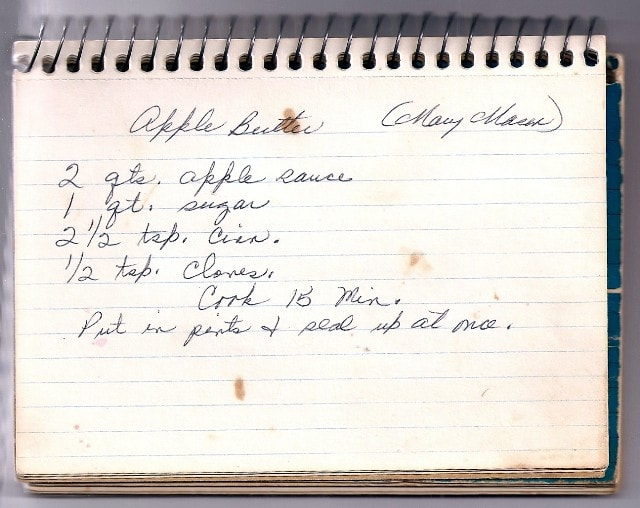 Apple Butter (Mary Mason)
2 qts. apple sauce
1 qt. sugar
2 1/2 tsp. Cinn.
1/2 tsp. Cloves.
Cook 15 Min.
Put in pints & seal up at once.